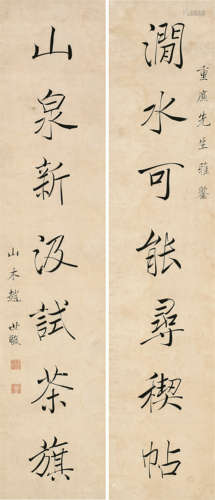 重廣先生雅鑒
澗水可能尋禊帖
山泉新汲試茶旗
山木趙世駿